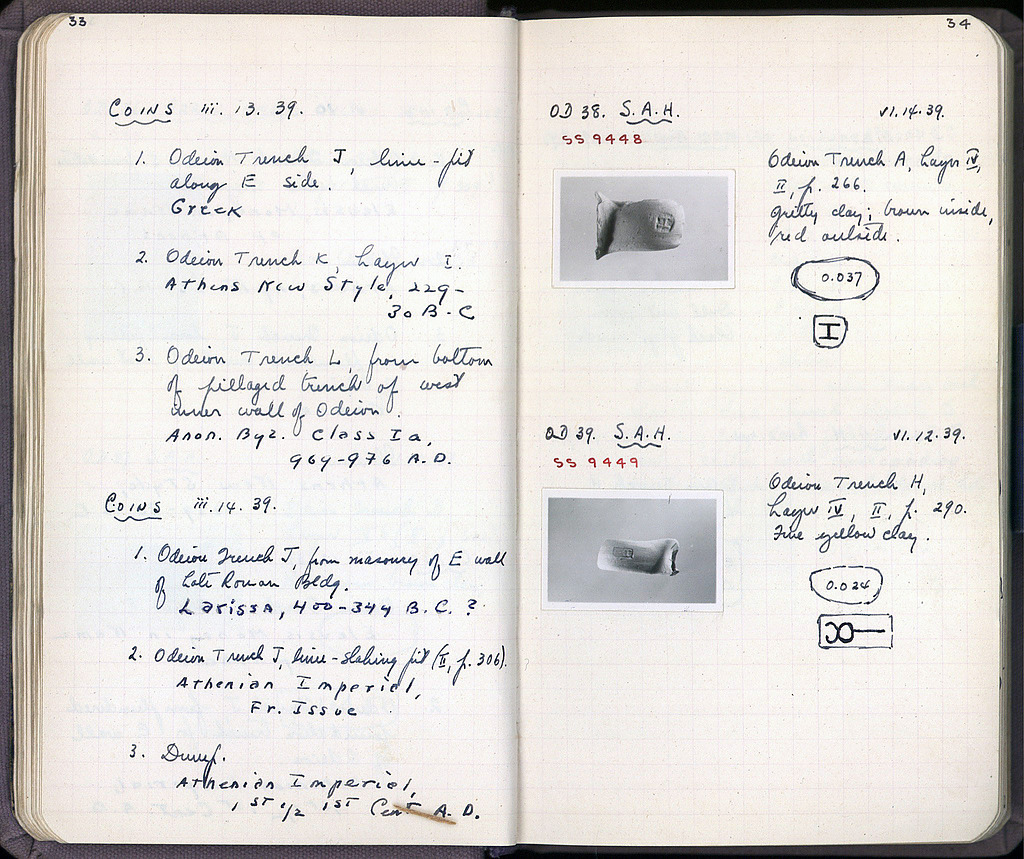 33
Coins iii. 13. 39.
1. Odeion Trench J, lime-pit
along E side.
Greek
2. Odeion Trench K, Layer I.
Athens New Style, 229-
30 B.C
3. Odeion Trench L, from bottom
of pillaged trench of west
inner wall of Odeion.
Anon. Byz. Class Ia,
969-976 A.D.
Coins iii. 14. 39.
1. Odeion Trench J, from masonry of E wall
of Late Roman Bldg.
Larissa, 400-344 B.C. ?
2. Odeion Trench J, lime-slaking pit (II, p. 306).
Athenian Imperial,
Fr. Issue
3. Dump.
Athenian Imperial,
1st 1/2 1st Cent A.D.
34
OD 38. S.A.H. VI. 14. 39.
SS 9448
Odeion Trench A, Layer IV,
II, p. 266.
Gritty clay; brown inside,
red outside.
0.037
I
OD 39. S.A.H. VI. 12. 39.
SS 9449
Odeion Trench H,
Layer IV, II, p. 290.
Fine yellow clay.
0.024